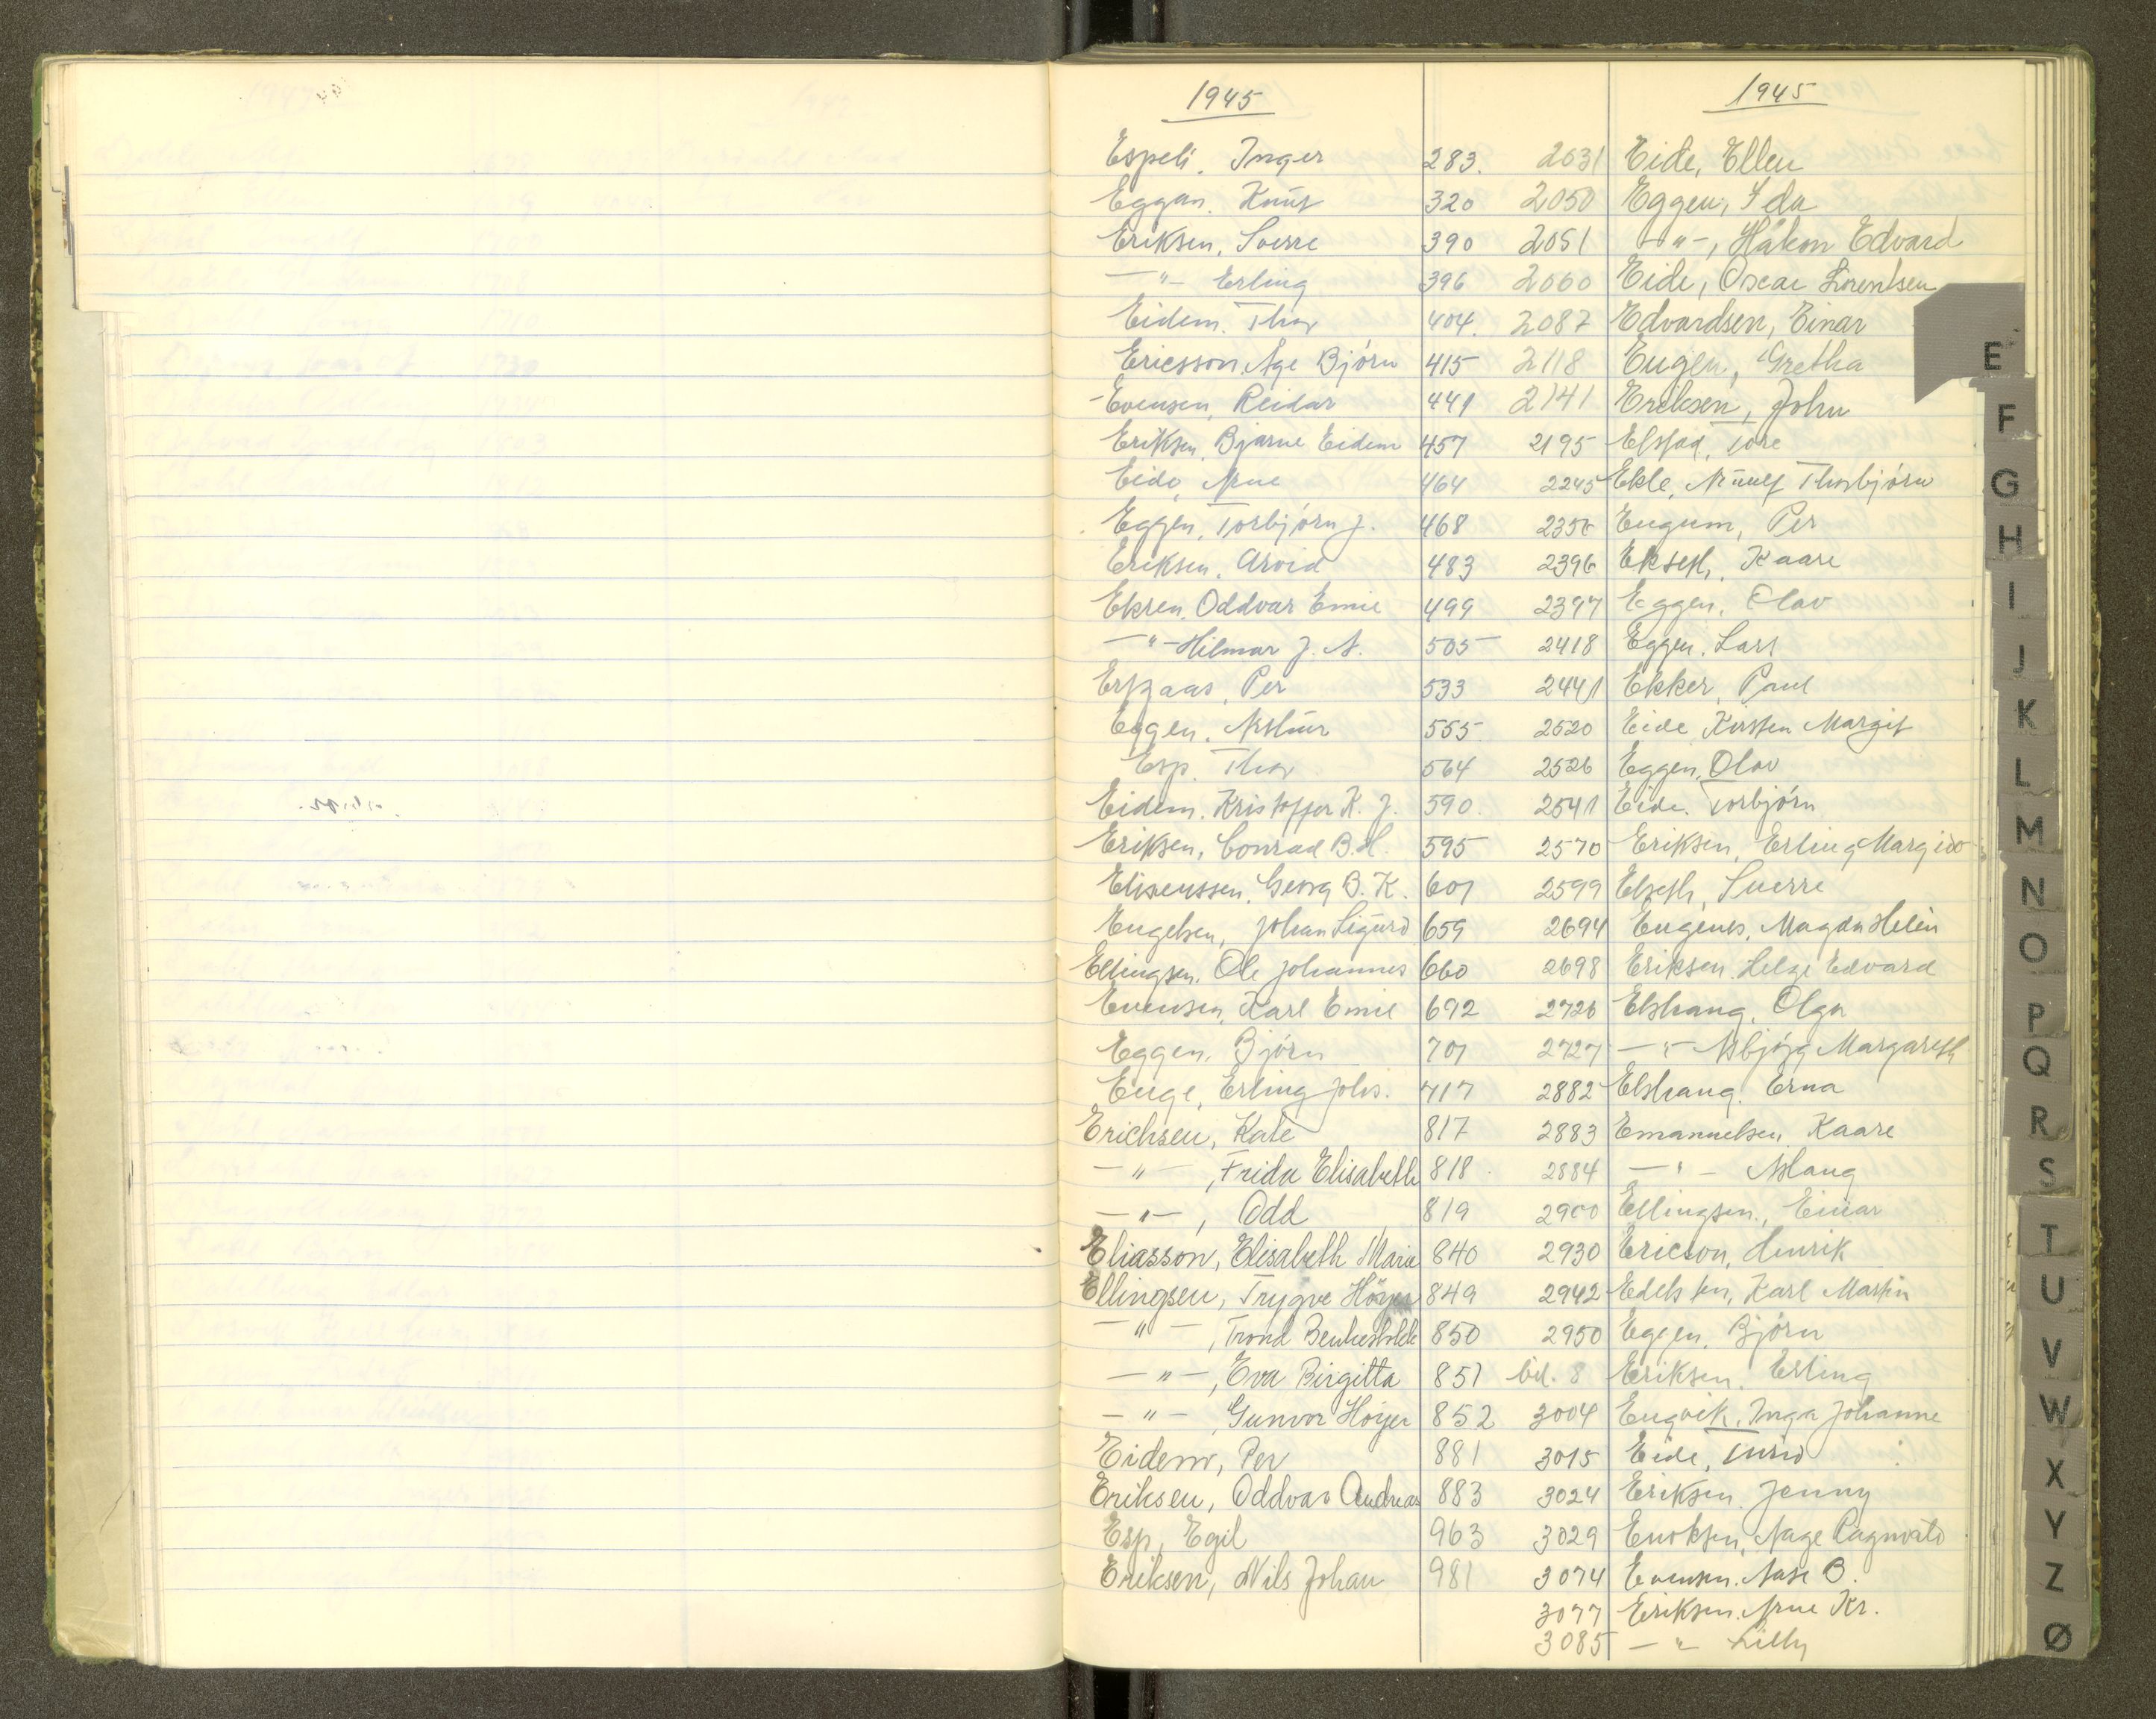 1945 1945
Espeli, Inger 283. 2031 Eide, Ellen
Eggan, Knut 320 2050 Eggen, Ida
Eriksen, Sverre 390 2051 -"-, Håkon Edvard
-"- Erling 396 2060 Eide, Oscar Lorentsen
Eidem, Thor 404. 2087 Edvardsen, Einar
Ericsson, Age Bjørn 415 2118 Eugen, Gretha
Evensen, Reidar 441 2141 Eriksen, John
Eriksen, Bjarne Eidem 457 2195 Elstad, Tore
Eide, Arne 464 2245 Ekle, Arnulf Thorbjørn
Eggen, Torbjørn J. 468 2356 Eugum, Per
Eriksen, Arvid 483 2396 Ekseth, Kaare
Ekren, Oddvar Emil 499 2397 Eggen, Olav
-"- Hilmar J. A. 505 2418 Eggen, Lars
Per 533 2441 Ekker, Paul
Eggen, Arthur 555 2520 Eide Kirsten Margit
Esp, Thor 564 2526 Eggen, Olav
Eidem, Kristoffer K. J. 590. 2541 Eide, Torbjørn
Eriksen, Conrad B. H. 595 2570 Eriksen, Erling Margido
Georg B. K. 601 2599 Elseth, Sverre
Engelsen, Johan Sigurd 659 2694 Eugenes, Magda Helen
Ellingsen, Ole Johannes 660 2698 Eriksen, Helge Edvard
Evensen, Karl Emil 692 2726 Elshaug, Olga
Eggen, Bjørn 701 2727 -"- Asbjørg Margareth
Enge, Erling Johs. 717 2882 Elshaug, Erna
Erichsen, Kate 817 2883 Emanuelsen, Kaare
-"-, Frida Elisabeth 818 2884 -"- Aslaug
-"-, Odd 819 2900 Ellingsen, Einar
Eliasson, Elisabeth Marie 840 2930 Ericson, Henrik
Ellingsen, Trygve Höyer 849 2942 Karl Martin
-"-, Trond 850 2950 Eggen, Bjørn
-"-, Eva Birgitta 851 bil. 8 Eriksen, Erling
-"-, Gunvor Höyer 852 3004 Engvik, Inga Johanne
Eidem, Per 881 3015 Eide, Turid
Eriksen, Oddvar Andreas 883 3024 Eriksen, Jenny
Esp, Egil 963 3029 Enoksen, Aage Ragnvald
Eriksen, Nils Johan 981 3074 Evensen, Aase B.
3077 Eriksen, Arne Kr.
3085 -"- Lilly
E
F
G
H
I
J
K
L
M
N
O
P
Q
R
S
T
U
V
W
X
Y
Z
Ø